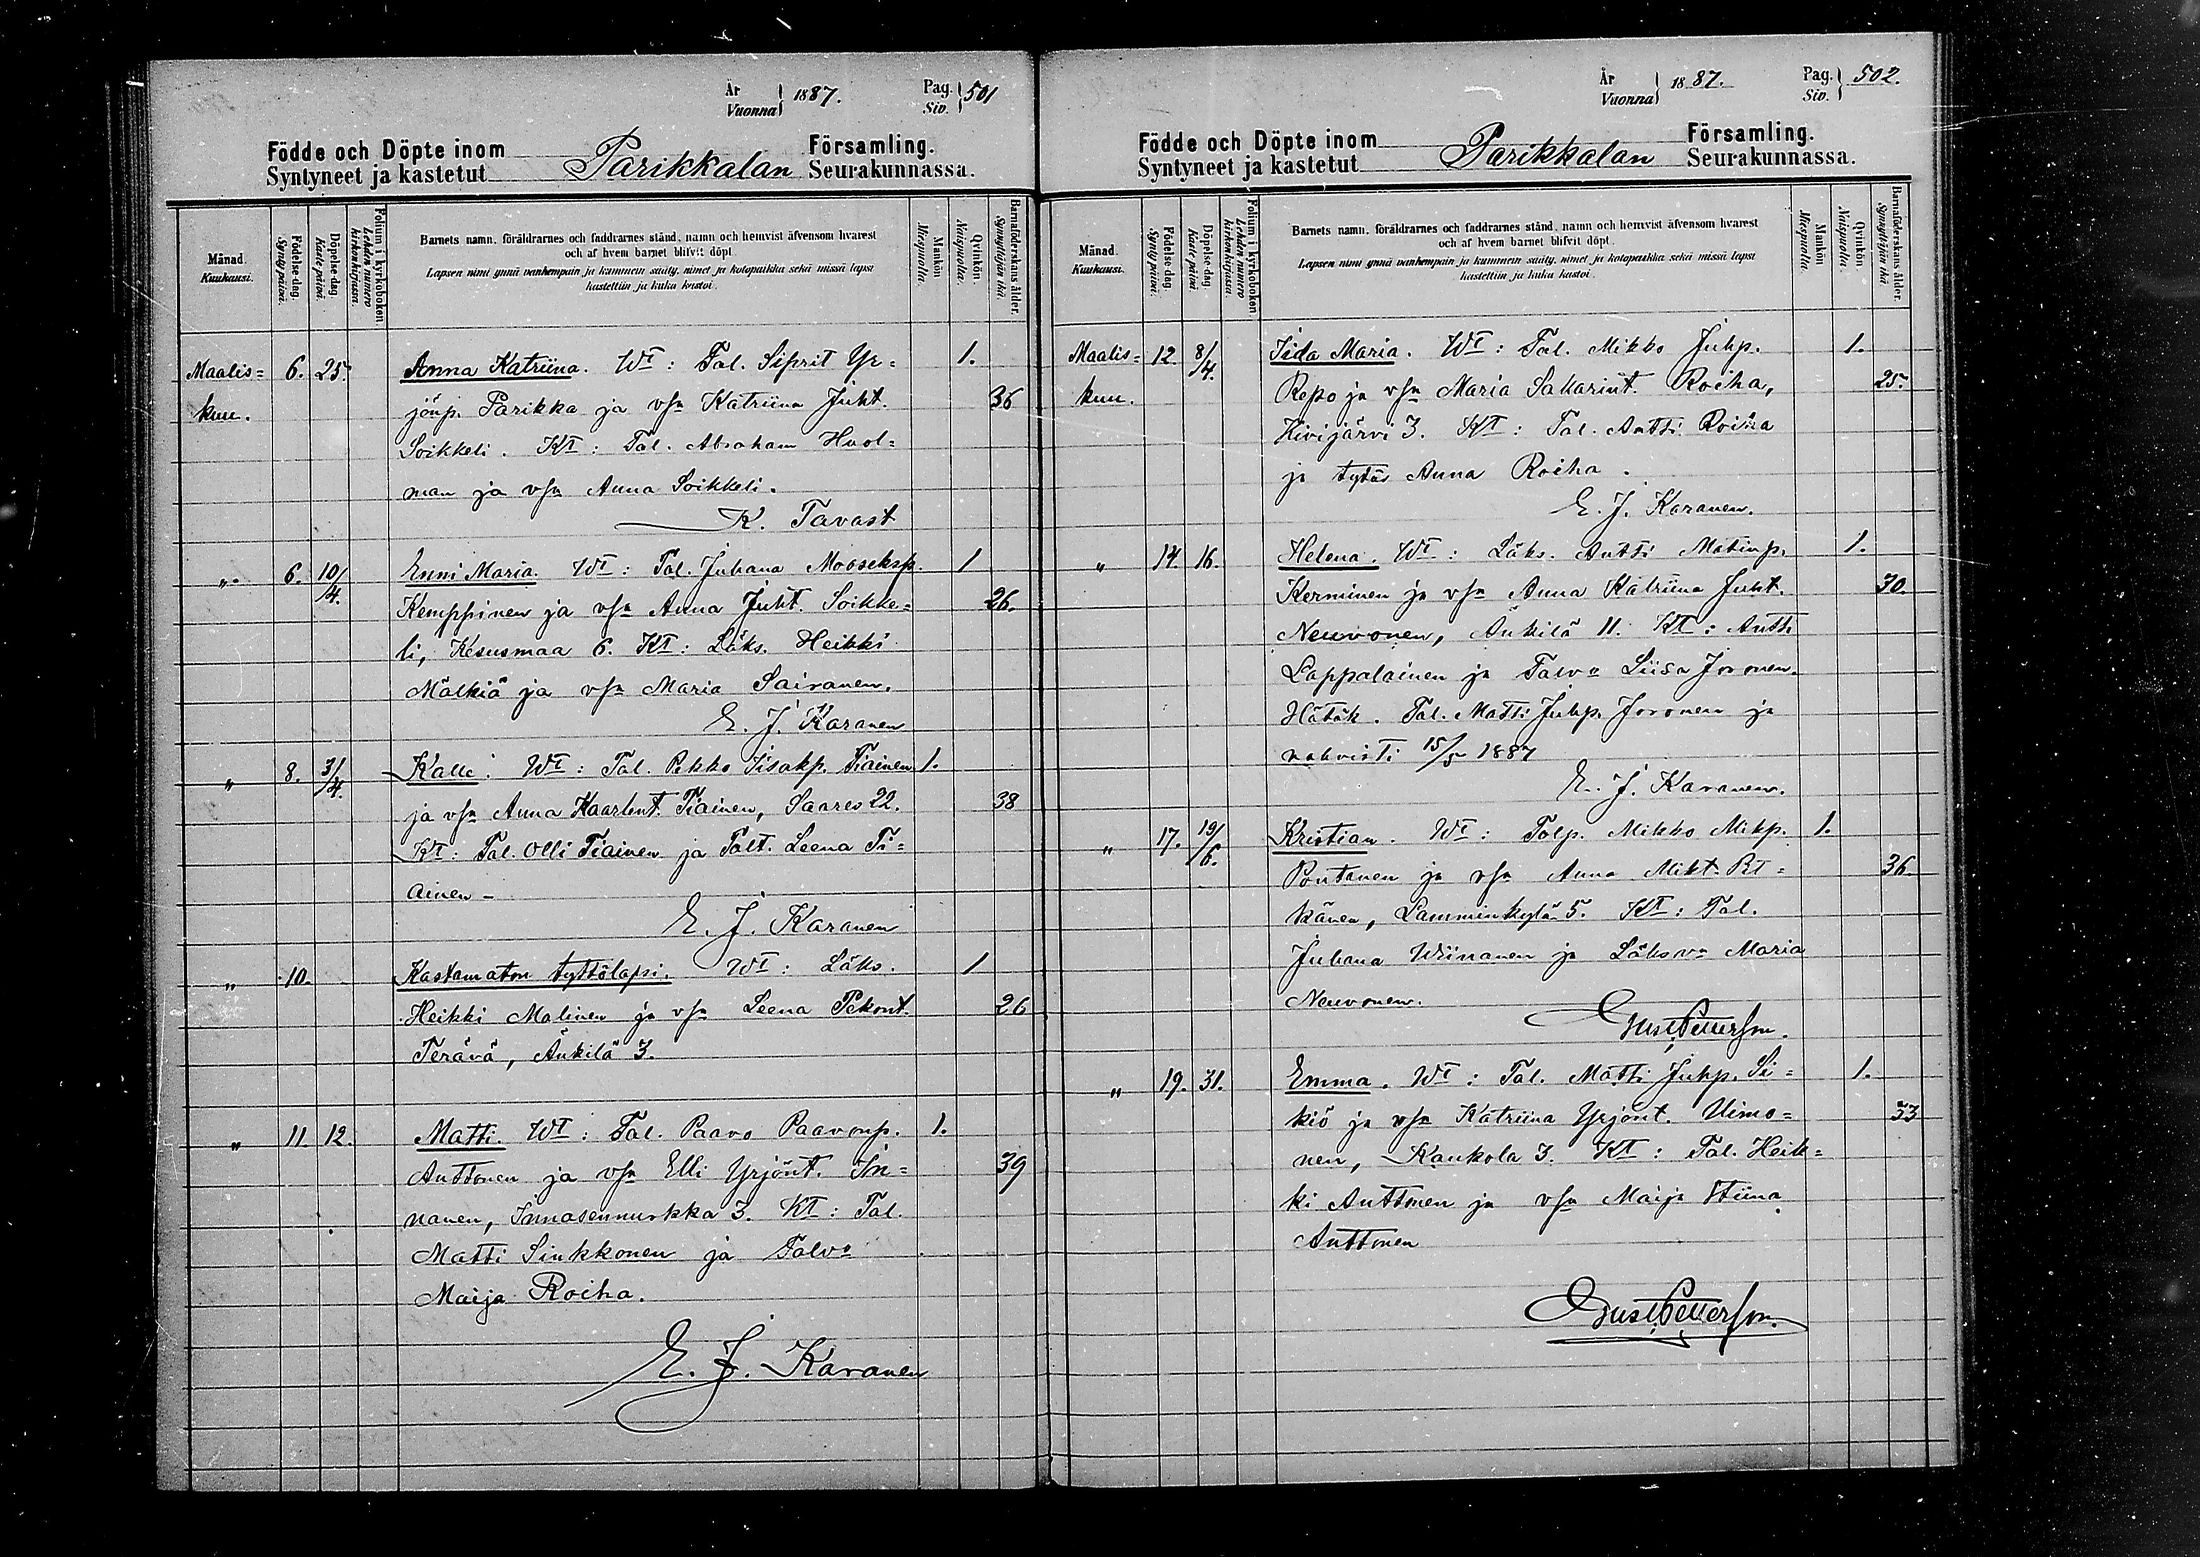 År
Vuonna } 1887.
Pag.
Siv. } 501
Födde och Döpte inom
Syntyneet ja kastetut Parikkalan Församling.
Seurakunnassa.
Månad.
Kuukausi.
Födelse-dag.
Synty päivä.
Döpelse-dag.
Kaste päivä.
Folium i kyrkoboken.
Lehden numero
kirkonkirjassa.
Barnets namn, föräldrarnes och faddrarnes stånd, namn och hemvist äfvensom hvarest
och af hvem barnet blifvit döpt.
Lapsen nimi ynnä vanhempain ja kummein sääty, nimet ja kotopaikka sekä missä lapsi
kastettiin ja kuka kastoi.
Mankön.
Miespuolia.
Qvinkön.
Naispuolia.
Barnaföderskans ålder.
Synnyttäjän ikä.
Maalis= 6. 25. Anna Katriina. Wt: Tal. Siprit Yr= 1.
kuu. jönp. Parikka ja vsa Katriina Juht. 36
Soikkeli. Kt: Tal. Abraham Huol=
man ja vsa Anna Soikkeli.
K. Tavast
„ 6. 10/4. Enni Maria. Wt: Tal. Juhana Mooseksp. 1
Kemppinen ja vsa Anna Juht. Soikke= 26.
li, Kesusmaa 6. Kt: Läks. Heikki
Mälkiä ja vsa Maria Sairanen.
E. J. Karanen
„ 8. 3/4. Kalle. Wt: Tal. Pekko Iisakp. Tiainen 1.
ja vsa Anna Kaarlent. Tiainen, Saares 22. 38
Kt: Tal. Olli Tiainen ja Talt. Leena Ti=
ainen -
E. J. Karanen
„ 10. Kastamaton tyttölapsi. Wt: Läks. 1
Heikki Malinen ja vsa Leena Pekont. 26
Terävä, Änkilä 3.
„ 11 12. Matti. Wt: Tal. Paavo Paavonp. 1.
Anttonen ja vsa Elli Yrjönt. In= 39
nanen, Innasennurkka 3. Kt: Tal.
Matti Sinkkonen ja Talva
Maija Roiha.
E. J. Karanen
År
Vuonna } 1887.
Pag.
Siv. } 502.
Födde och Döpte inom
Syntyneet ja kastetut Parikkalan Församling.
Seurakunnassa.
Månad.
Kuukausi.
Födelse-dag.
Synty päivä.
Döpelse-dag.
Kaste päivä.
Folium i kyrkoboken.
Lehden numero
kirkonkirjassa.
Barnets namn, föräldrarnes och faddrarnes stånd, namn och hemvist äfvensom hvarest
och af hvem barnet blifvit döpt.
Lapsen nimi ynnä vanhempain ja kummein sääty, nimet ja kotopaikka sekä missä lapsi
kastettiin ja kuka kastoi.
Mankön.
Miespuolia.
Qvinkön.
Naispuolia.
Barnaföderskans ålder.
Synnyttäjän ikä.
Maalis= 12. 8/4. Iida Maria. Wt: Tal. Mikko Juhp. 1.
kuu. Repo ja vsa Maria Sakarint. Roiha, 25.
Kivijärvi 3. Kt: Tal. Antti Roiha
ja tytär Anna Roiha.
E. J. Karanen.
„ 14. 16. Helena. Wt: Läks. Antti Matinp. 1.
Kerminen ja vsa Anna Katriina Juht. 30.
Neuvonen, Änkilä 11. Kt: Antti
Lappalainen ja Talva Liisa Joronen.
Hätäk. Tal. Matti Juhp. Joronen ja
vahvisti 15/5 1887
E. J. Karanen.
„ 17. 19/6. Kristian. Wt: Talp. Mikko Mikp. 1.
Pontanen ja vsa Anna Mikt. Pit= 36.
känen, Lamminkylä 5. Kt: Tal.
Juhana Wiinanen ja Läksva Maria
Neuvonen.
Gust. Petterson.
„ 19. 31. Emma. Wt: Tal. Matti Juhp. Si= 1.
kiö ja vsa Katriina Yrjönt. Uimo= 33
nen, Kankola 3. Kt: Tal. Heik=
ki Anttonen ja vsa Maija Stiina
Anttonen
Gust. Petterson.